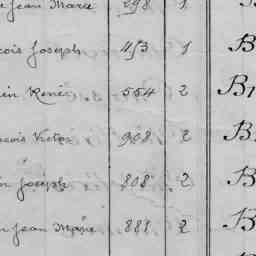 Jean Marie 298 1 B
Joseph 453 1 B
René 554 2 Br
Victor 908 2 B
Joseph 808 2 B
Jean Marie 888 2 B